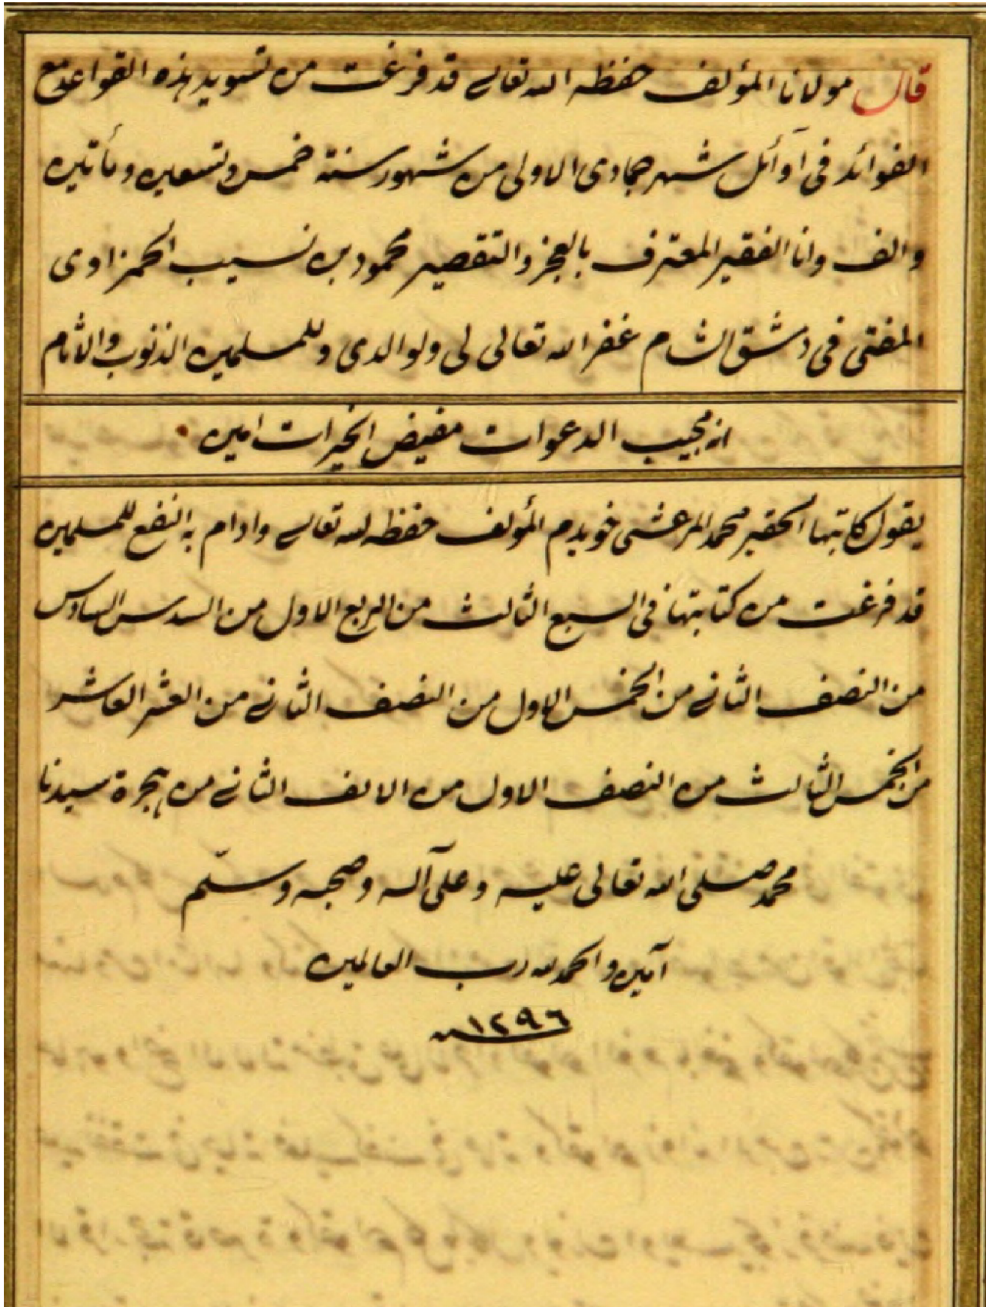 قال مولانا المؤلف حفظه الله تعالى قد فرغت من تسويد هذه القواعد مع
الفوائد في اوآئل شهر جمادى الاولى من شهور سنة خمس وتسعين ومأتين
والف وانا الفقير المعترف بالعجز والتقصير محمود بن نسيب الحمزاوى
المفتى فى دمشق الشام غفر الله تعالى لى ولوالدى وللمسلمين الذنوب والآثام
انه مجيب الدعوات مفيض الخيرات امين
يقول كاتبها الحقير محمد المرعشى خويدم المؤلف حفظه الله تعالى وادام به النفع للمسلمين
قد فرغت من كتابتها في السبع الثالث من الربع الاول من السدس السادس
من النصف الثاني من الخمس الاول من النصف الثاني من العشر العاشر
من الخمس الثالث من النصف الاول من الالف الثاني من هجرة سيدنا
محمد صلى الله تعالى عليه وعلى آله وصحبه وسلّم
آمين والحمد لله رب العالمين
سنة ١٢٩٦